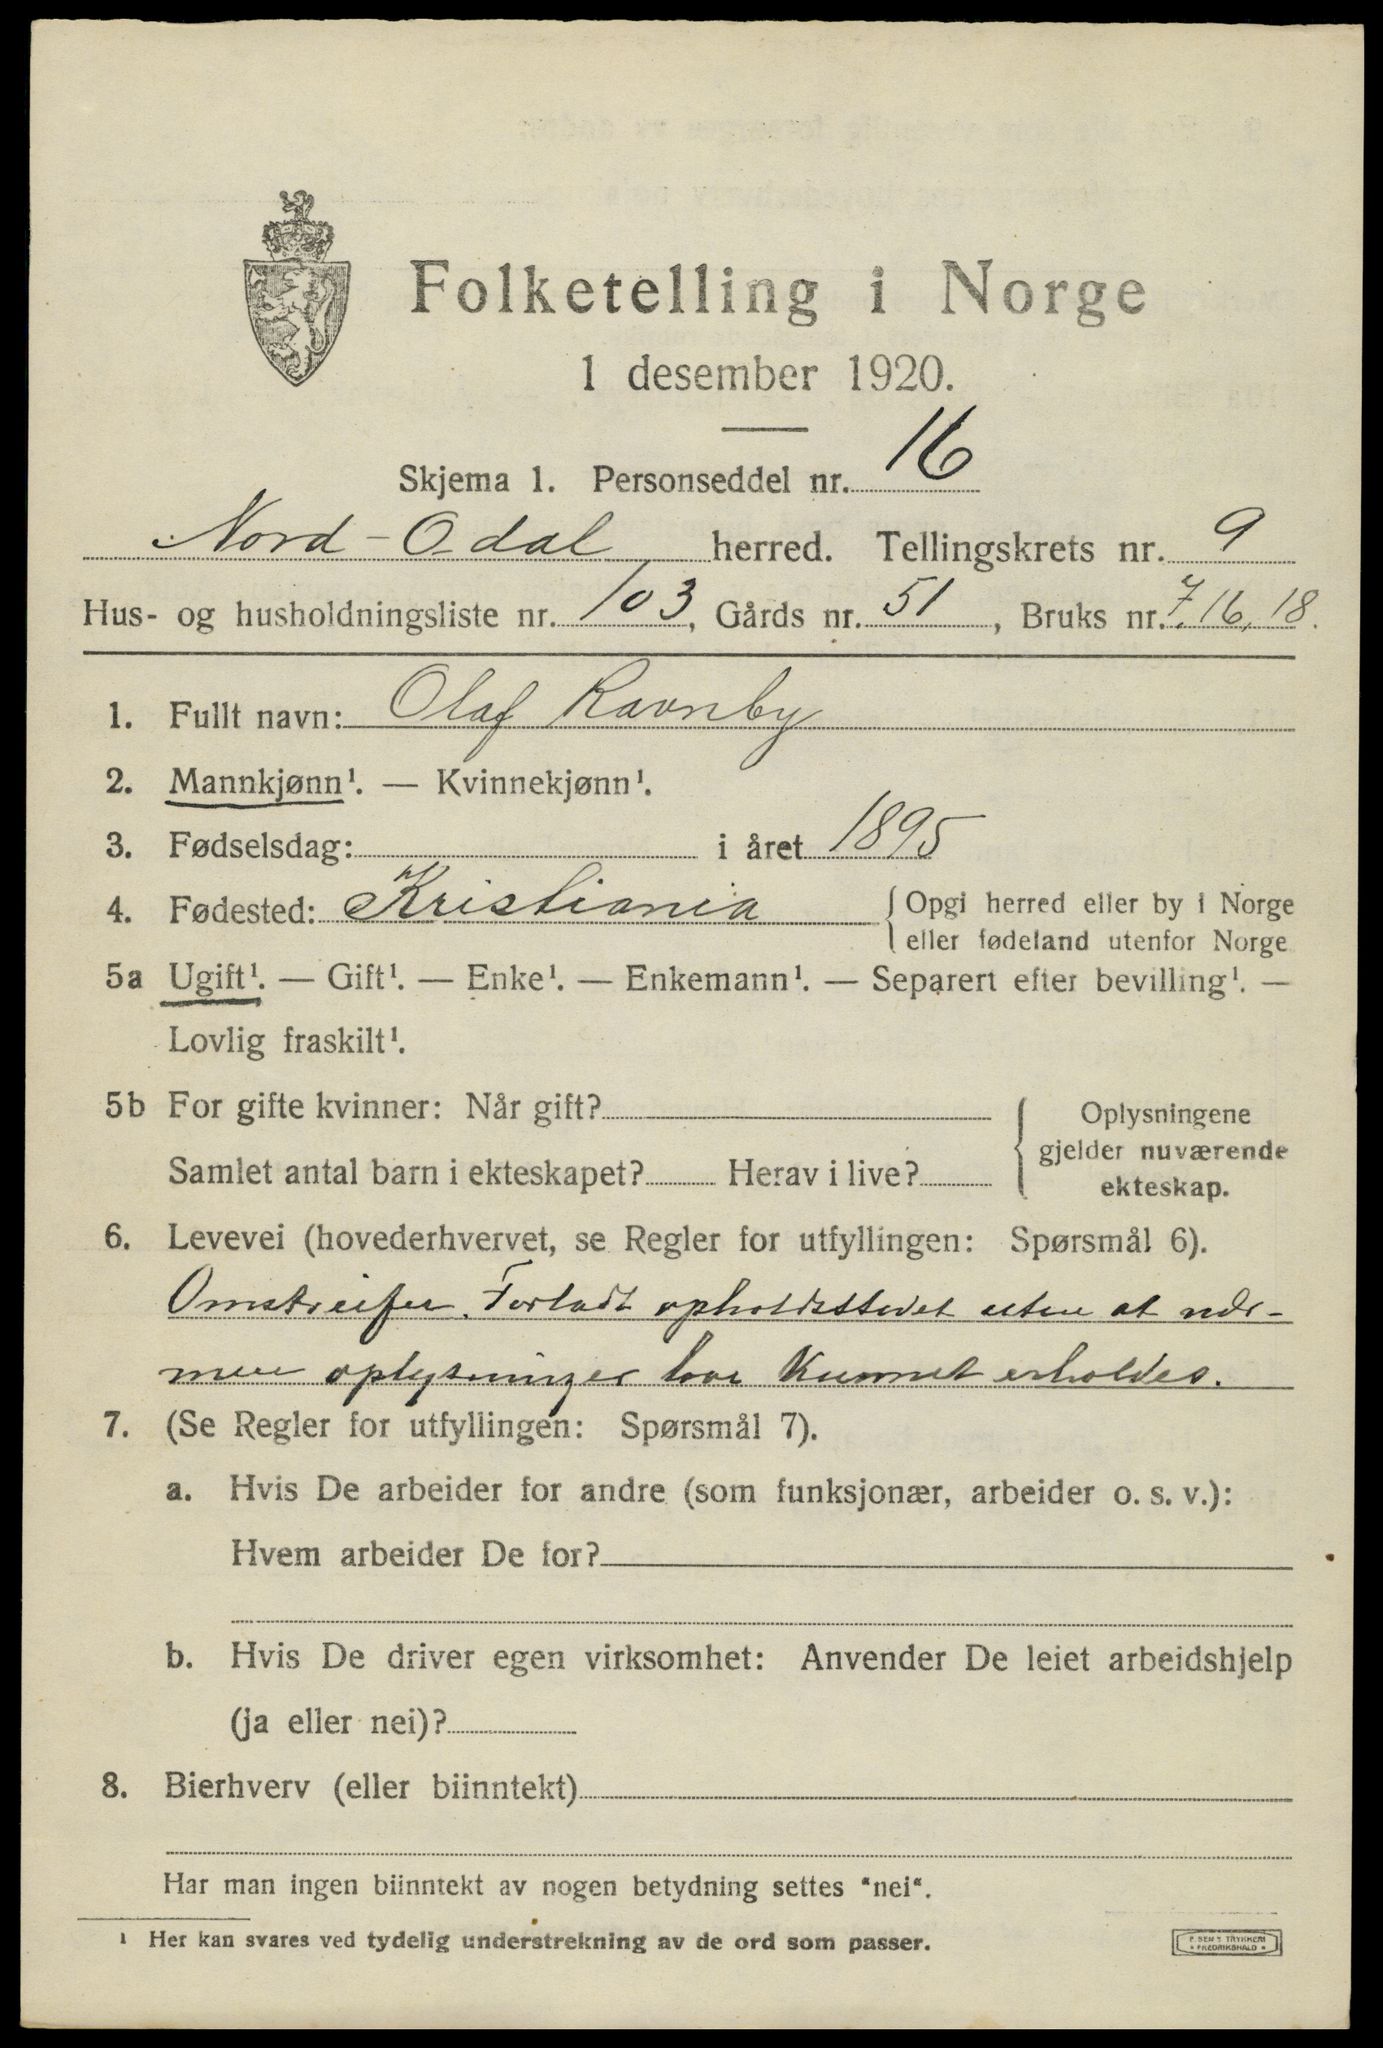 Folketelling i Norge
1 desember 1920.
Skjema 1. Personseddel nr. 16
Nord-Odal herred. Tellingskrets nr. 9
Hus- og husholdningsliste nr. 103, Gårds nr. 51, Bruks nr. 7.16,18.
1. Fullt navn: Olaf Ravnby
2. Mannkjønn¹. — Kvinnekjønn¹.
3. Fødselsdag: i året 1895
4. Fødested: Kristiania { Opgi herred eller by i Norge
eller fødeland utenfor Norge
5a Ugift¹. — Gift¹. — Enke¹. — Enkemann¹. — Separert efter bevilling¹. —
Lovlig fraskilt¹.
5b For gifte kvinner: Når gift? { Oplysningene
gjelder nuværende
Samlet antal barn i ekteskapet? Herav i live?
ekteskap.
6. Levevei (hovederhvervet, se Regler for utfyllingen: Spørsmål 6).
Omstreifer. Forladt opholdsstedet uten at nær-
mere oplysninger har kunnet erholdes.
7. (Se Regler for utfyllingen: Spørsmål 7).
a. Hvis De arbeider for andre (som funksjonær, arbeider o. s. v.):
Hvem arbeider De for?
b. Hvis De driver egen virksomhet: Anvender De leiet arbeidshjelp
(ja eller nei)?
8. Bierhverv (eller biinntekt)
Har man ingen biinntekt av nogen betydning settes "nei".
¹ Her kan svares ved tydelig understrekning av de ord som passer.
TRYKKERI
* FREDRIKSHALD *